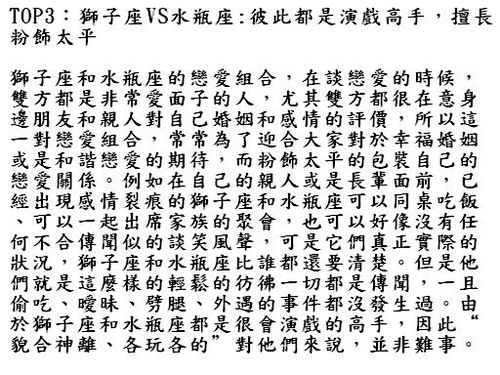 TOP3：獅子座VS水瓶座:彼此都是演戲高手，擅長
粉飾太平
獅子座和水瓶座的戀愛組合，在談戀愛的時候，
雙方都是非常愛面子的人，尤其雙方都很在意身
邊朋友和親人對自己婚姻和感情的評價，所以這
一對戀愛組合，常常為了迎合大家對於幸福婚姻
或是和諧戀愛的期待，而粉飾太平的包裝自己的
戀愛關係。例如在自己的親人或是長輩面前，已
經出現感情裂痕的獅子座和水瓶座可以同桌吃飯
、可以一起出席家族的聚會，也可以好像沒有任
何不合傳聞似的談笑風聲，可是它們真正實際的
狀況，獅子座和水瓶座比誰都還要清楚。但是他
們就是這麼樣的輕鬆的彷彿一切都是傳聞，一且
偷吃、曖昧、劈腿、外遇的事件都沒發生過。由
於獅子座和水瓶座都是很會演戲的高手，因此“
貌合神離、各玩各的”對他們來說，並非難事。